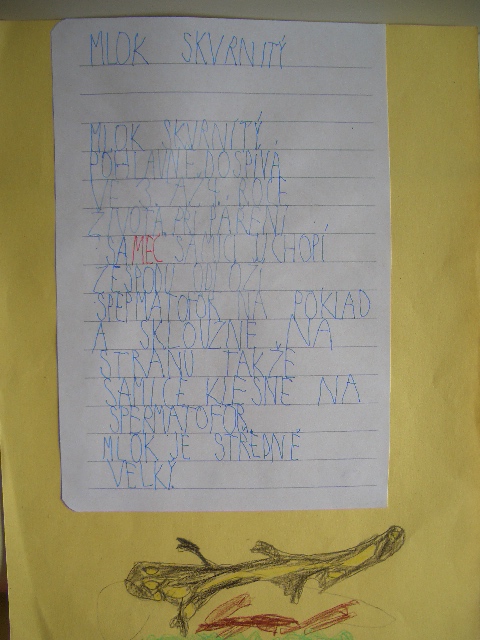 MLOK SKVRNITÝ
MLOK SKVRNITÝ
POHLAVNĚ DOSPÍVÁ
VE 3. AŽ 4. ROCE
ŽIVOTA. PŘI PÁŘENÍ
SAMEC SAMICI UCHOPÍ
ZESPODU ODLOŽÍ
SPEPMATOFOR NA POKLAD
A SKLOUZNE NA
STRANU TAKŽE
SAMICE KLESNE NA
SPERMATOFOR.
MLOK JE STŘEDNĚ
VELKÝ